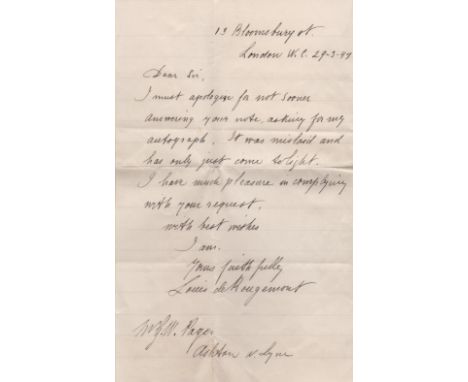 13 Bloomsbury st.
London W.C. 29-3-99
Dear Sir,
I must apologize for not sooner
answering your note, asking for my
autograph. It was mislaid and
has only just come to light.
I have much pleasure in complying
with your request.
with best wishes
I am.
Yours faithfully
Louis de Rougemont
W. Pager
Ashton u. Lyne